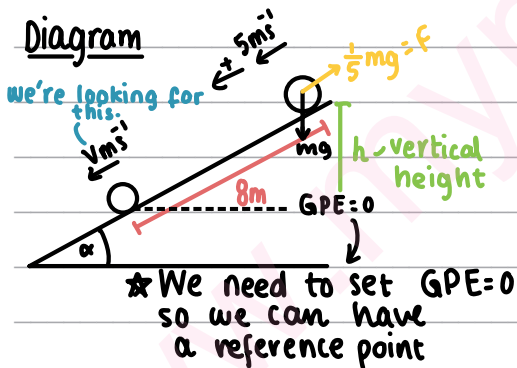 Diagram
+ 5ms⁻¹
1/5 mg = F
we're looking for
this.
Vms⁻¹
mg
h - vertical
height
8m
GPE=0
α
☆ We need to set GPE=0
so we can have
a reference point